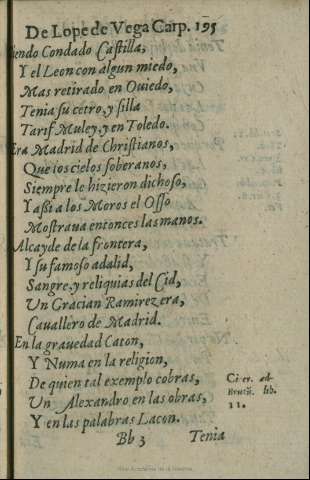 De Lope de Vega Carp. 195
iendo Condado Castilla,
Y el Leon con algun miedo,
Mas retirado en Ouiedo,
Tenia su cetro, y silla
Tarif Muley, y en Toledo.
Era Madrid de Christianos,
Que los cielos soberanos,
Siempre le hizieron dichoso,
Y assi a los Moros el Osso
Mostraua entonces las manos.
Alcayde de la frontera,
Y su famoso adalid,
Sangre, y reliquias del Cid,
Un Gracian Ramirez era,
Cauallero de Madrid.
En la grauedad Caton,
Y Numa en la religion,
De quien tal exemplo cobras,
Un Alexandro en las obras,
Y en las palabras Lacon.
Ci er. ad
Brutũ. lib.
11.
Bb 3 Tenia